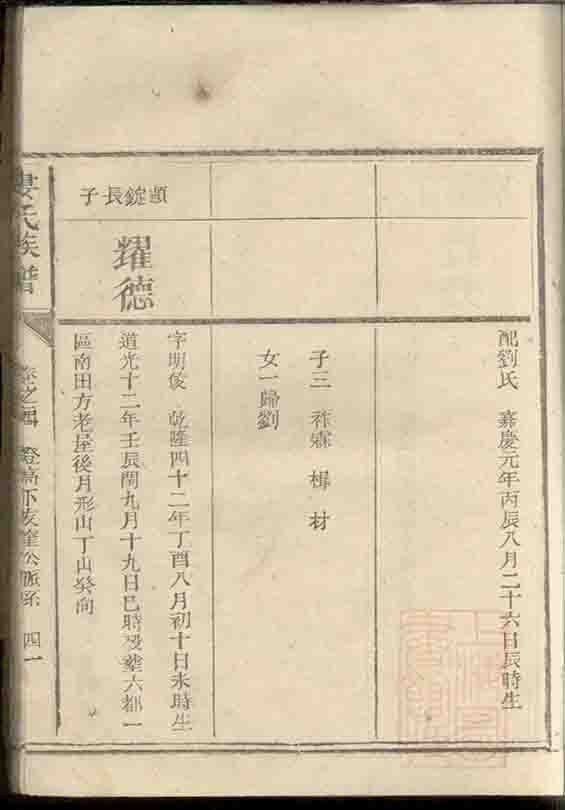 配劉氏 嘉慶元年丙辰八月二十六日辰時生
子三 祚霖 楫 材
女一歸劉
顯錠長子
耀德
字明俊 乾隆四十二年丁酉八月初十日未時生
道光十二年壬辰閏九月十九日巳時歿塟六都一
區南田方老屋後月形山丁山癸向
婁氏族譜
卷之四 下友 公派系 四一